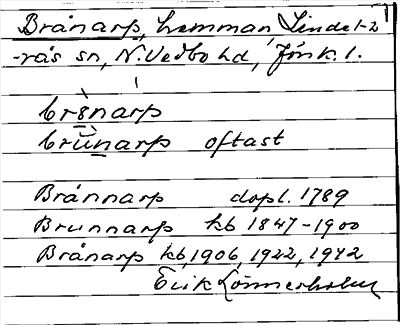 Brånarp, hemman, Linde 1-2
-rås sn, N. Vedbo hd, Jönk. l.
brånarp
brùnarp oftast
Brånnarp dopl. 1789
Brunnarp kb 1847-1900
Brånarp kb, 1906, 1922, 1942
Erik Lönnerholm